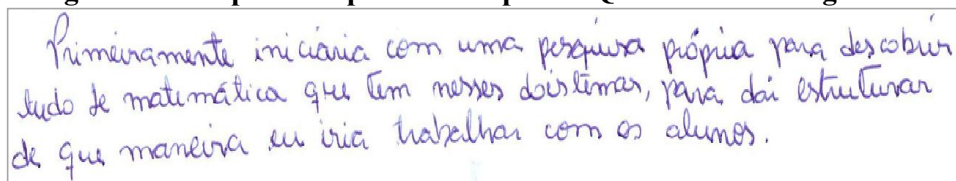 Primeiramente iniciaria com uma pesquisa própria para descobrir
tudo de matemática que tem nesses dois temas, para daí estruturar
de que maneira eu iria trabalhar com os alunos.